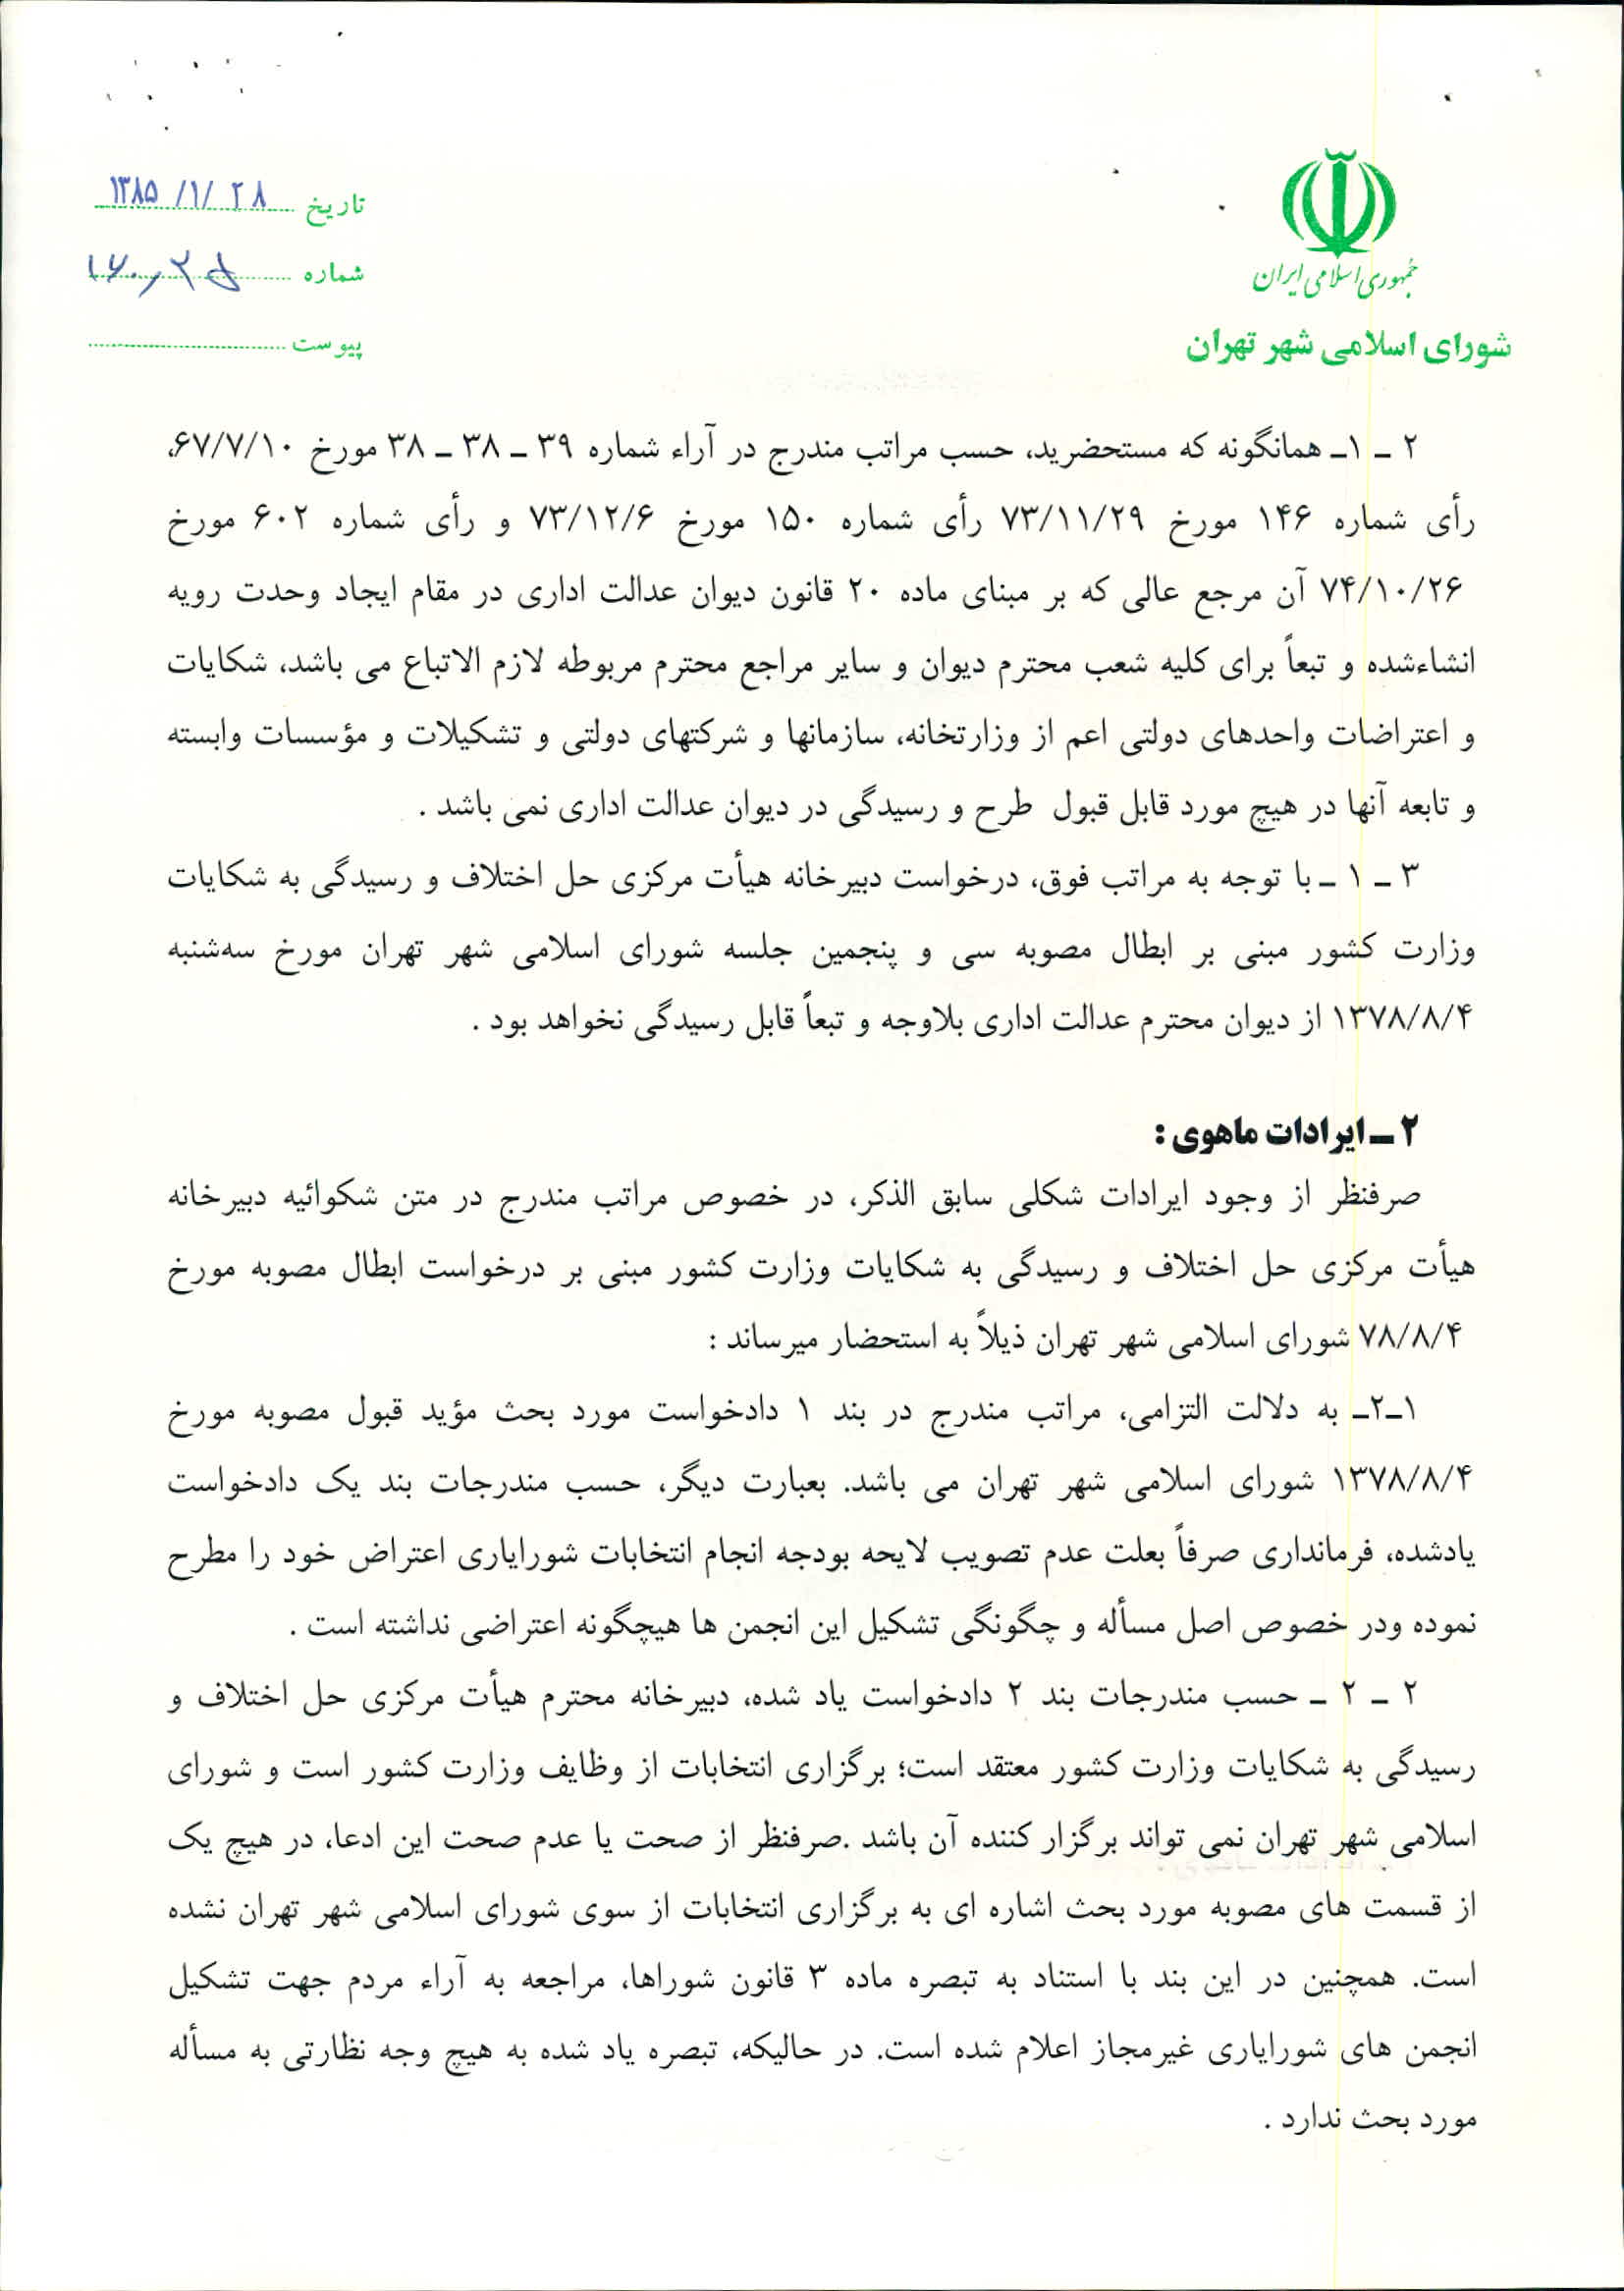 جمهوری اسلامی ایران
شورای اسلامی شهر تهران
تاریخ ۱۳۸۵/۱/۲۸
شماره
پیوست
۲ ـ ۱ـ همانگونه که مستحضرید، حسب مراتب مندرج در آراء شماره ۳۹ ـ ۳۸ ـ ۳۸ مورخ ۶۷/۷/۱۰،
رأی شماره ۱۴۶ مورخ ۷۳/۱۱/۲۹ رأی شماره ۱۵۰ مورخ ۷۳/۱۲/۶ و رأی شماره ۶۰۲ مورخ
۷۴/۱۰/۲۶ آن مرجع عالی که بر مبنای ماده ۲۰ قانون دیوان عدالت اداری در مقام ایجاد وحدت رویه
انشاءشده و تبعاً برای کلیه شعب محترم دیوان و سایر مراجع محترم مربوطه لازم الاتباع می باشد، شکایات
و اعتراضات واحدهای دولتی اعم از وزارتخانه، سازمانها و شرکتهای دولتی و تشکیلات و مؤسسات وابسته
و تابعه آنها در هیچ مورد قابل قبول طرح و رسیدگی در دیوان عدالت اداری نمی باشد .
۳ ـ ۱ ـ با توجه به مراتب فوق، درخواست دبیرخانه هیأت مرکزی حل اختلاف و رسیدگی به شکایات
وزارت کشور مبنی بر ابطال مصوبه سی و پنجمین جلسه شورای اسلامی شهر تهران مورخ سه‌شنبه
۱۳۷۸/۸/۴ از دیوان محترم عدالت اداری بلاوجه و تبعاً قابل رسیدگی نخواهد بود .
۲ ـ ایرادات ماهوی :
صرفنظر از وجود ایرادات شکلی سابق الذکر، در خصوص مراتب مندرج در متن شکوائیه دبیرخانه
هیأت مرکزی حل اختلاف و رسیدگی به شکایات وزارت کشور مبنی بر درخواست ابطال مصوبه مورخ
۷۸/۸/۴ شورای اسلامی شهر تهران ذیلاً به استحضار میرساند :
۱ـ۲ـ به دلالت التزامی، مراتب مندرج در بند ۱ دادخواست مورد بحث مؤید قبول مصوبه مورخ
۱۳۷۸/۸/۴ شورای اسلامی شهر تهران می باشد. بعبارت دیگر، حسب مندرجات بند یک دادخواست
یادشده، فرمانداری صرفاً بعلت عدم تصویب لایحه بودجه انجام انتخابات شورایاری اعتراض خود را مطرح
نموده ودر خصوص اصل مسأله و چگونگی تشکیل این انجمن ها هیچگونه اعتراضی نداشته است .
۲ ـ ۲ ـ حسب مندرجات بند ۲ دادخواست یاد شده، دبیرخانه محترم هیأت مرکزی حل اختلاف و
رسیدگی به شکایات وزارت کشور معتقد است؛ برگزاری انتخابات از وظایف وزارت کشور است و شورای
اسلامی شهر تهران نمی تواند برگزار کننده آن باشد .صرفنظر از صحت یا عدم صحت این ادعا، در هیچ یک
از قسمت های مصوبه مورد بحث اشاره ای به برگزاری انتخابات از سوی شورای اسلامی شهر تهران نشده
است. همچنین در این بند با استناد به تبصره ماده ۳ قانون شوراها، مراجعه به آراء مردم جهت تشکیل
انجمن های شورایاری غیرمجاز اعلام شده است. در حالیکه، تبصره یاد شده به هیچ وجه نظارتی به مسأله
مورد بحث ندارد .